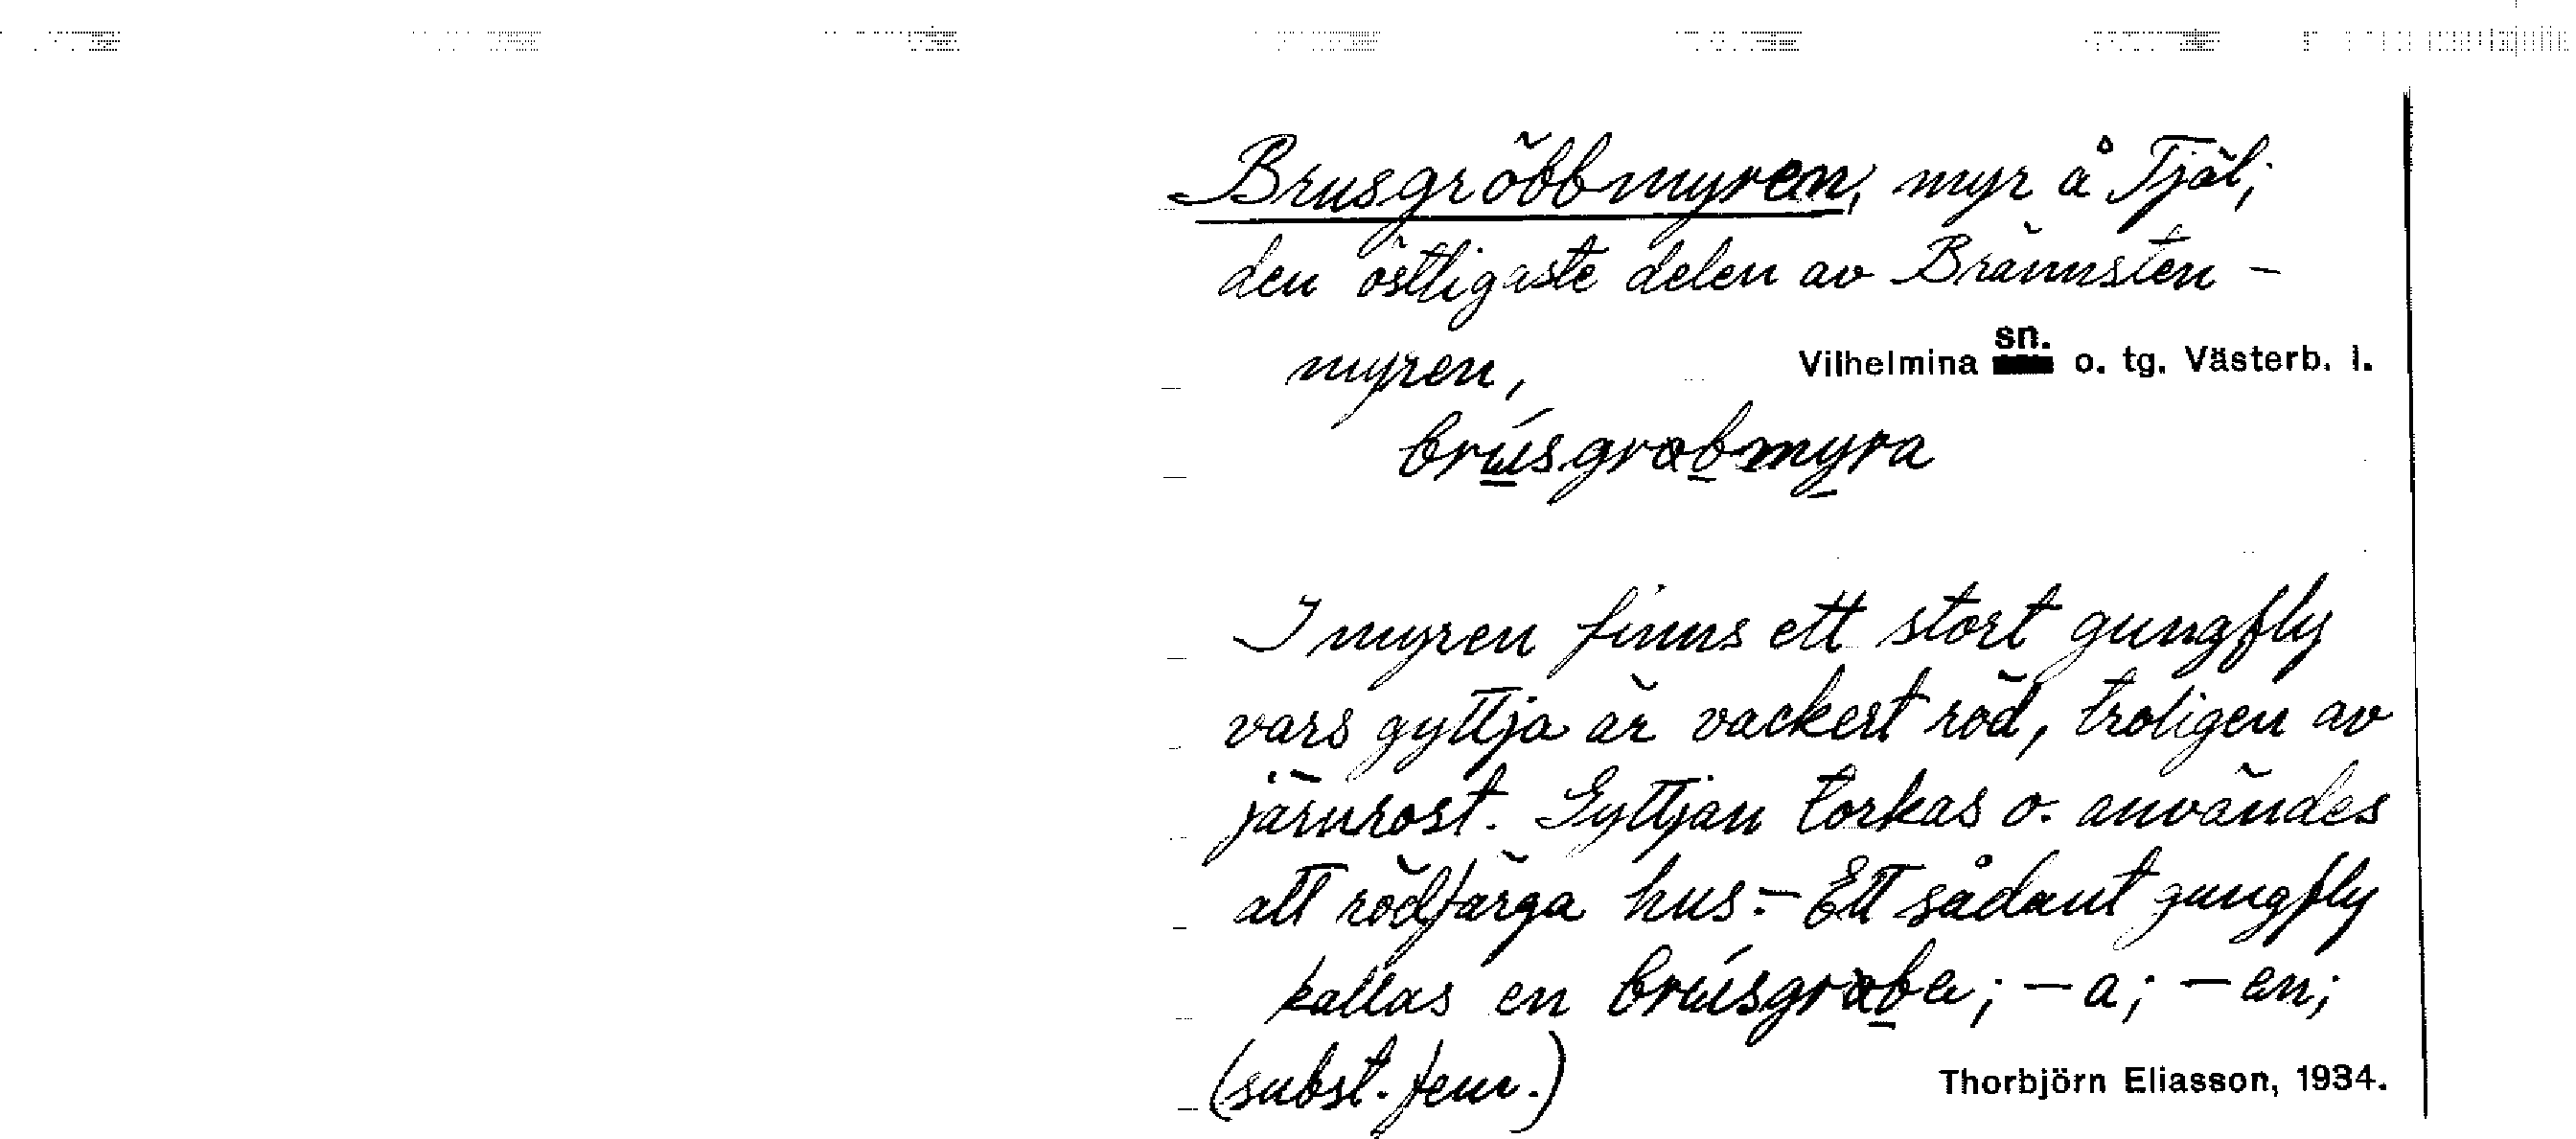 Brusgröbbmyren, myr å Tjäl;
den östligaste delen av Brännsten-
myren,
Vilhelmina sn. o. tg. Västerb. l.
brúsgrɶbmyra
I myren finns ett stort gungfly
vars gyttja är vackert röd, troligen av
järnrost. Gyttjan torkas o. användes
att rödfärga hus. – Ett sådant gungfly
kallas en brúsgrɶba; – a; – en;
(subst. fem.)
Thorbjörn Eliasson, 1934.